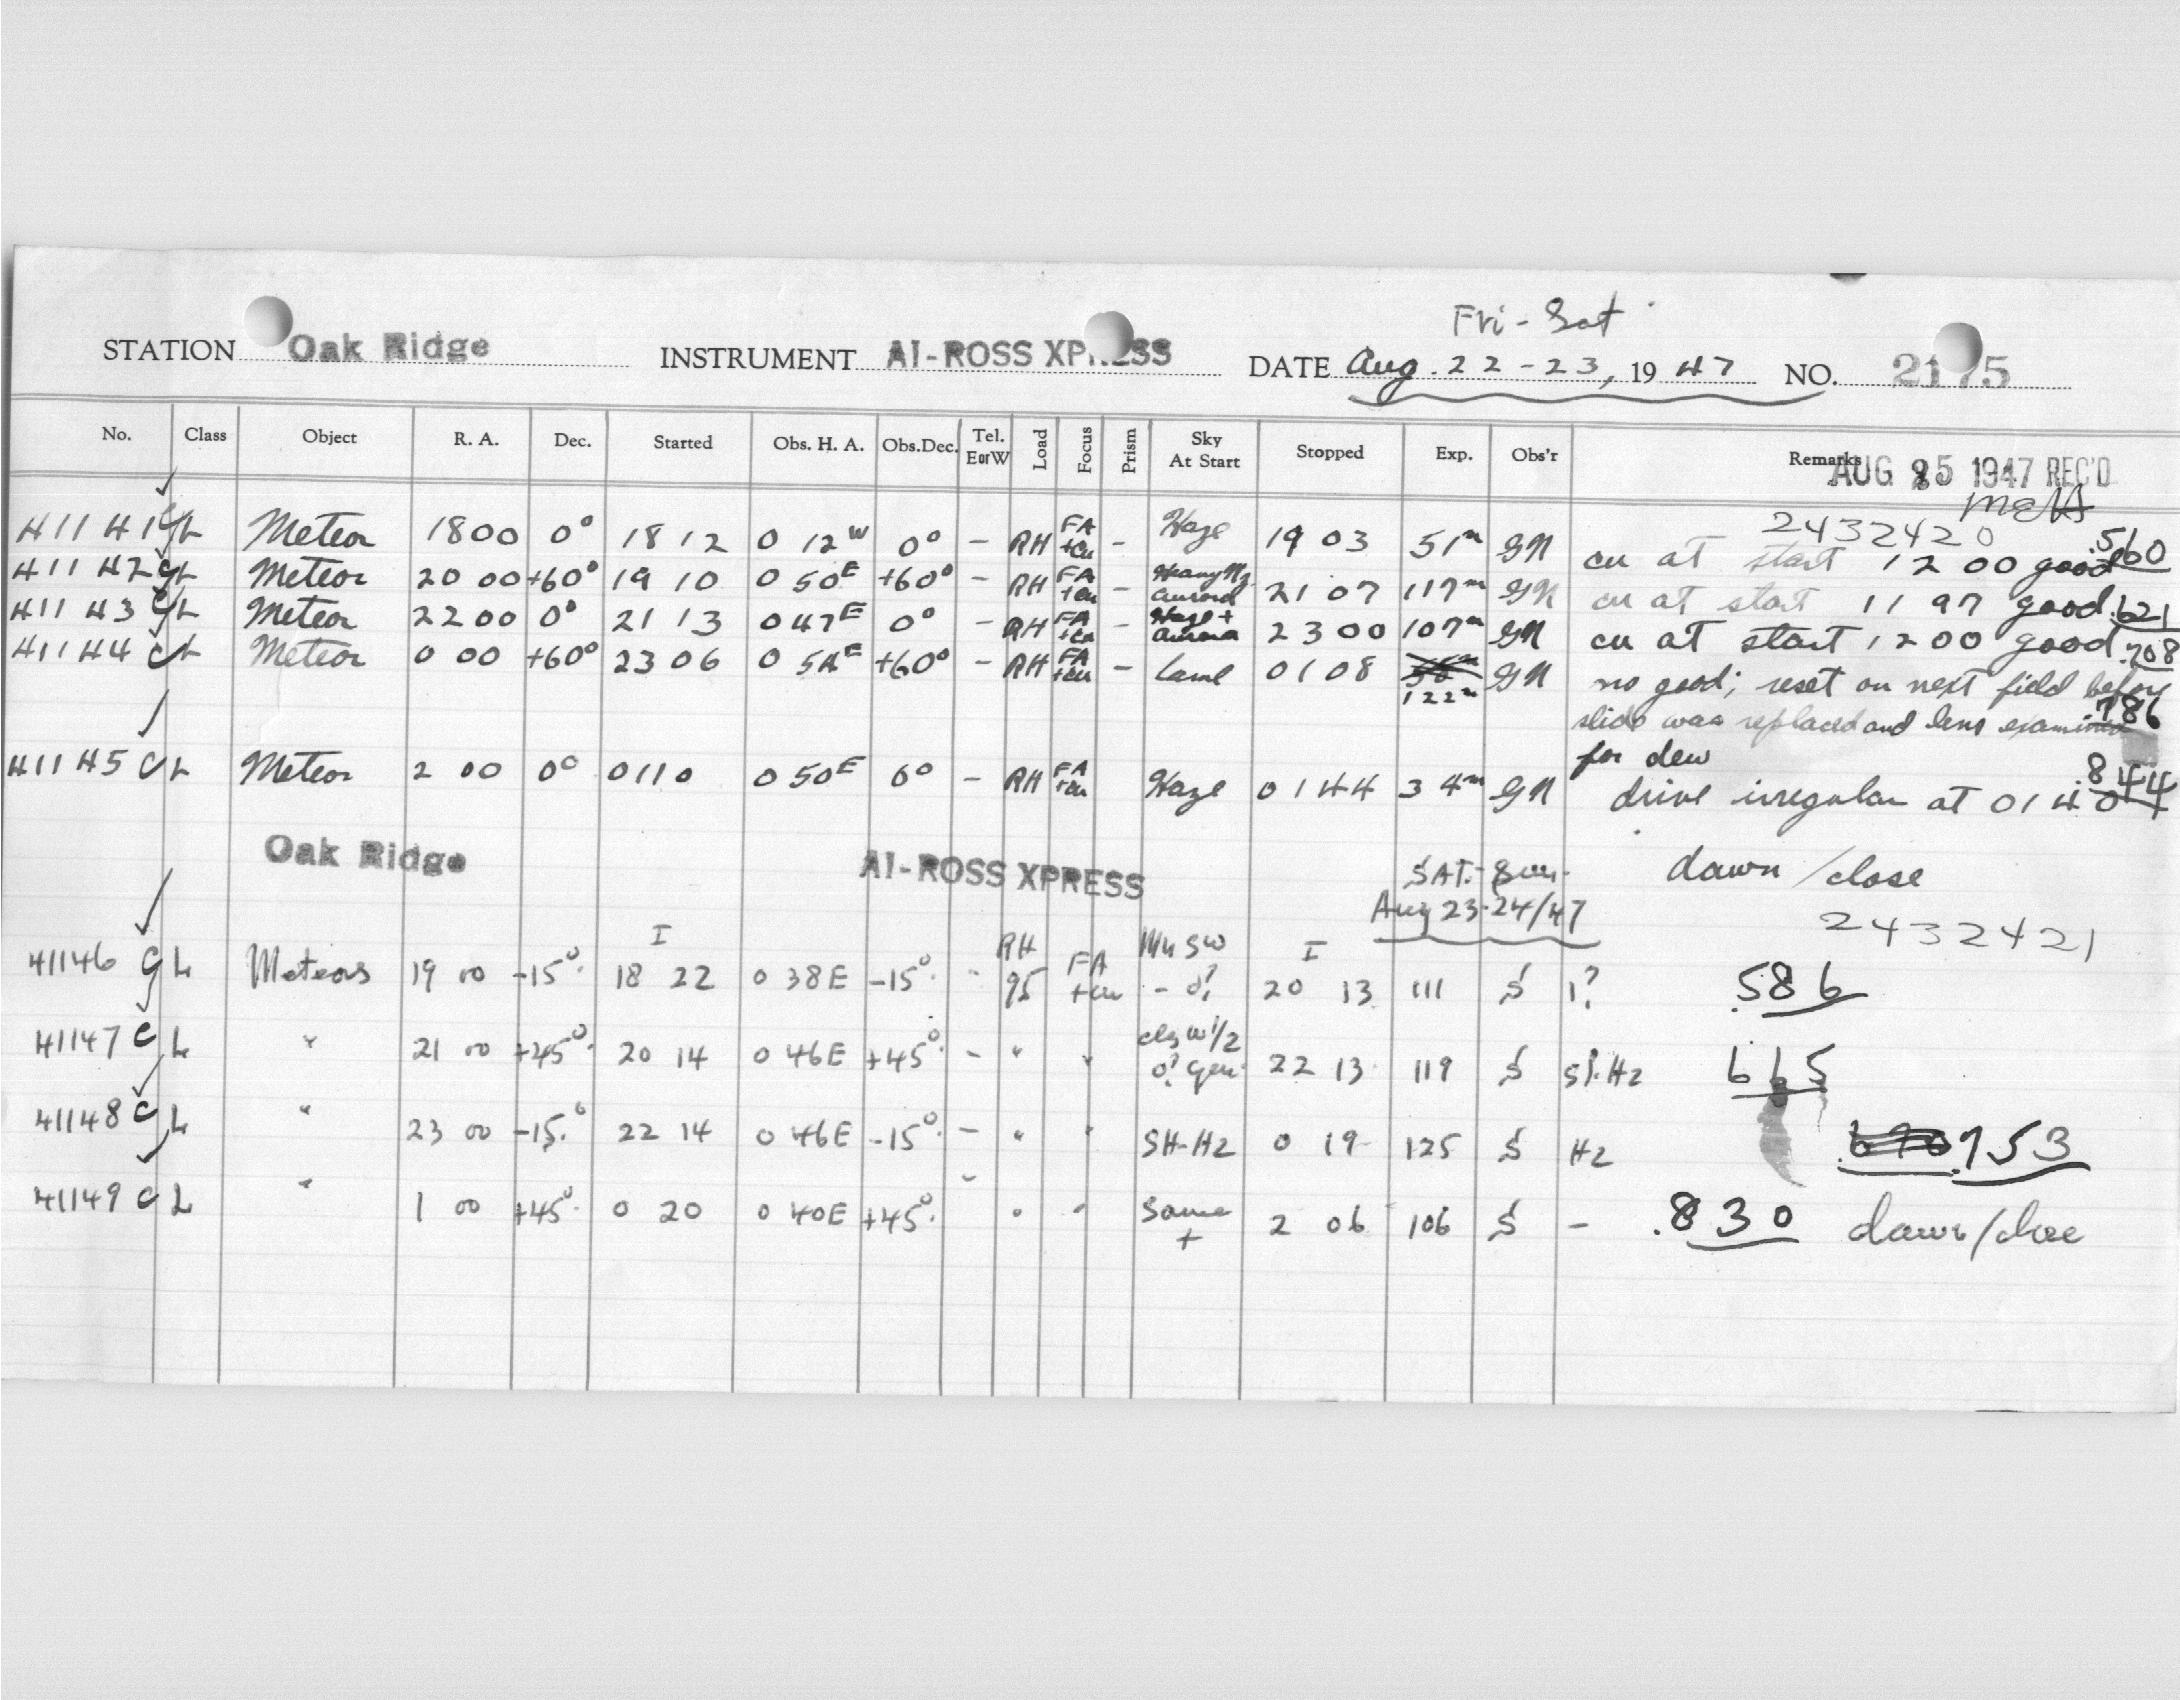 Fri - Sat
STATION Oak Ridge INSTRUMENT AI-ROSS XPRESS DATE Aug. 22-23, 1947 NO. 2175
No. Class Object R. A. Dec. Started Obs. H. A. Obs. Dec. Tel. E or W Load Focus Prism Sky At Start Stopped Exp. Obs'r Remarks
AUG 25 1947 REC'D
2432420
41141 L Meteor 18 00 0° 18 12 0 12 W 0° - RH FA +cu - Haze 19 03 51m GN cu at start 12 00 good .560
41142 L Meteor 20 00 +60° 19 10 0 50 E +60° - RH FA +cu - Heavy Hz aurora 21 07 117m GN cu at start 11 97 good .621
41143 L Meteor 22 00 0° 21 13 0 47 E 0° - RH FA +cu - Haze + aurora 23 00 107m GN cu at start 12 00 good .708
41144 L Meteor 0 00 +60° 23 06 0 54 E +60° - RH FA +cu - Same 01 08 122m GN no good; reset on next field before
slide was replaced and lens examined .786
for dew
41145 L Meteor 2 00 0° 01 10 0 50 E 0° - RH FA +cu Haze 01 44 34m GN drive irregular at 01 40 .844
Oak Ridge AI-ROSS XPRESS SAT.-Sun. dawn/close
Aug 23-24/47 2432421
41146 L Meteors 19 00 -15° I 18 22 0 38E -15° - RH 95 FA +cu SW - 0? I 20 13 111 S 1? .586
41147 C L " 21 00 +45° 20 14 0 46E +45° - " " W 1/2 0? 22 13 119 S Sl. Hz 665
41148 C L " 23 00 -15° 22 14 0 46E -15° - " " SH-Hz 0 19 125 S Hz .753
41149 C L " 1 00 +45° 0 20 0 40E +45° - " " Same + 2 06 106 S - .830 dawn/close